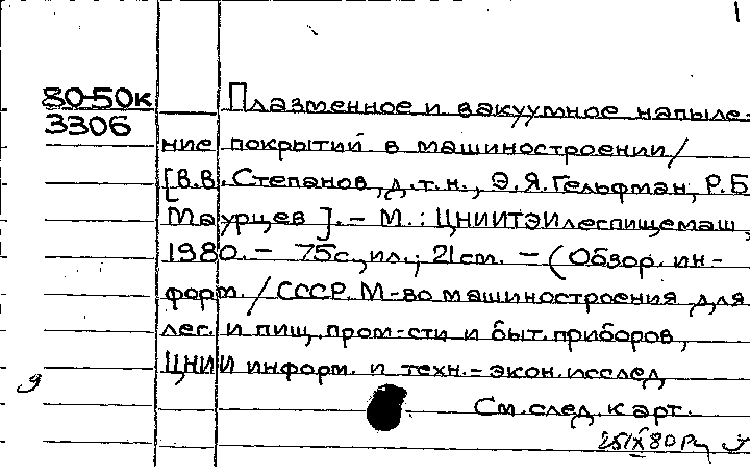 1
80-50к Плазменное и вакуумное напыле-
3306
ние покрытий в машиностроении/
[В.В. Степанов, д.т.н., Э.Я. Гельфман, Р.Б
Маурцев]. - М.: ЦНИИТЭИлегпищемаш,
1980. - 75с., ил.; 21см. - (Обзор. ин-
форм. / СССР. М-во машиностроения для
лег. и пищ. пром-сти и быт. приборов,
ЦНИИ информ. и техн.-экон. исслед.
9
См. след. карт.
25/IX 80